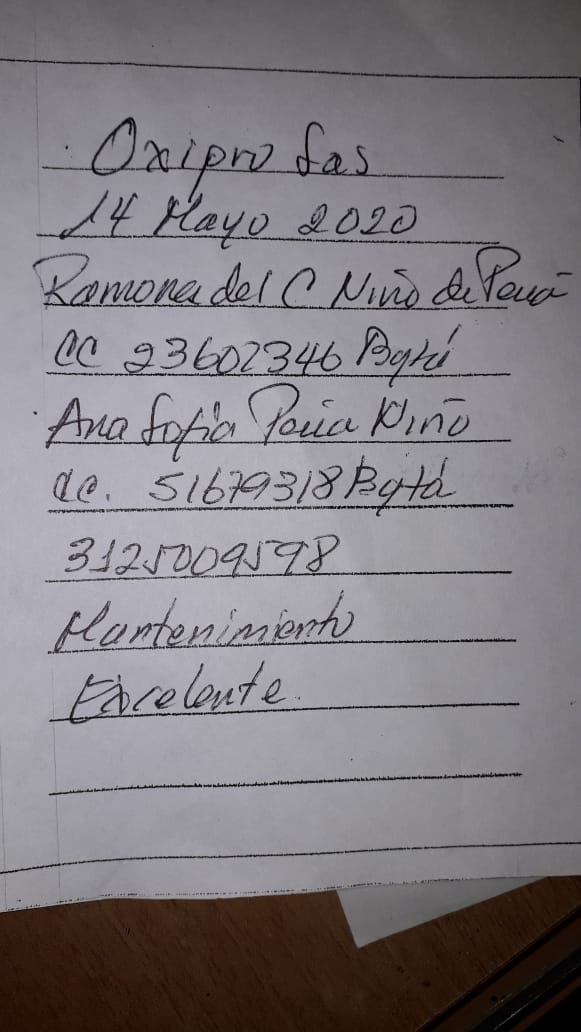 Oxipro Sas
14 Mayo 2020
Ramona del C Niño de Peña
CC 23602346 Bgtá
Ana Sofia Peña Niño
cc. 51679318 Bgtá
3125009598
Mantenimiento
Excelente.